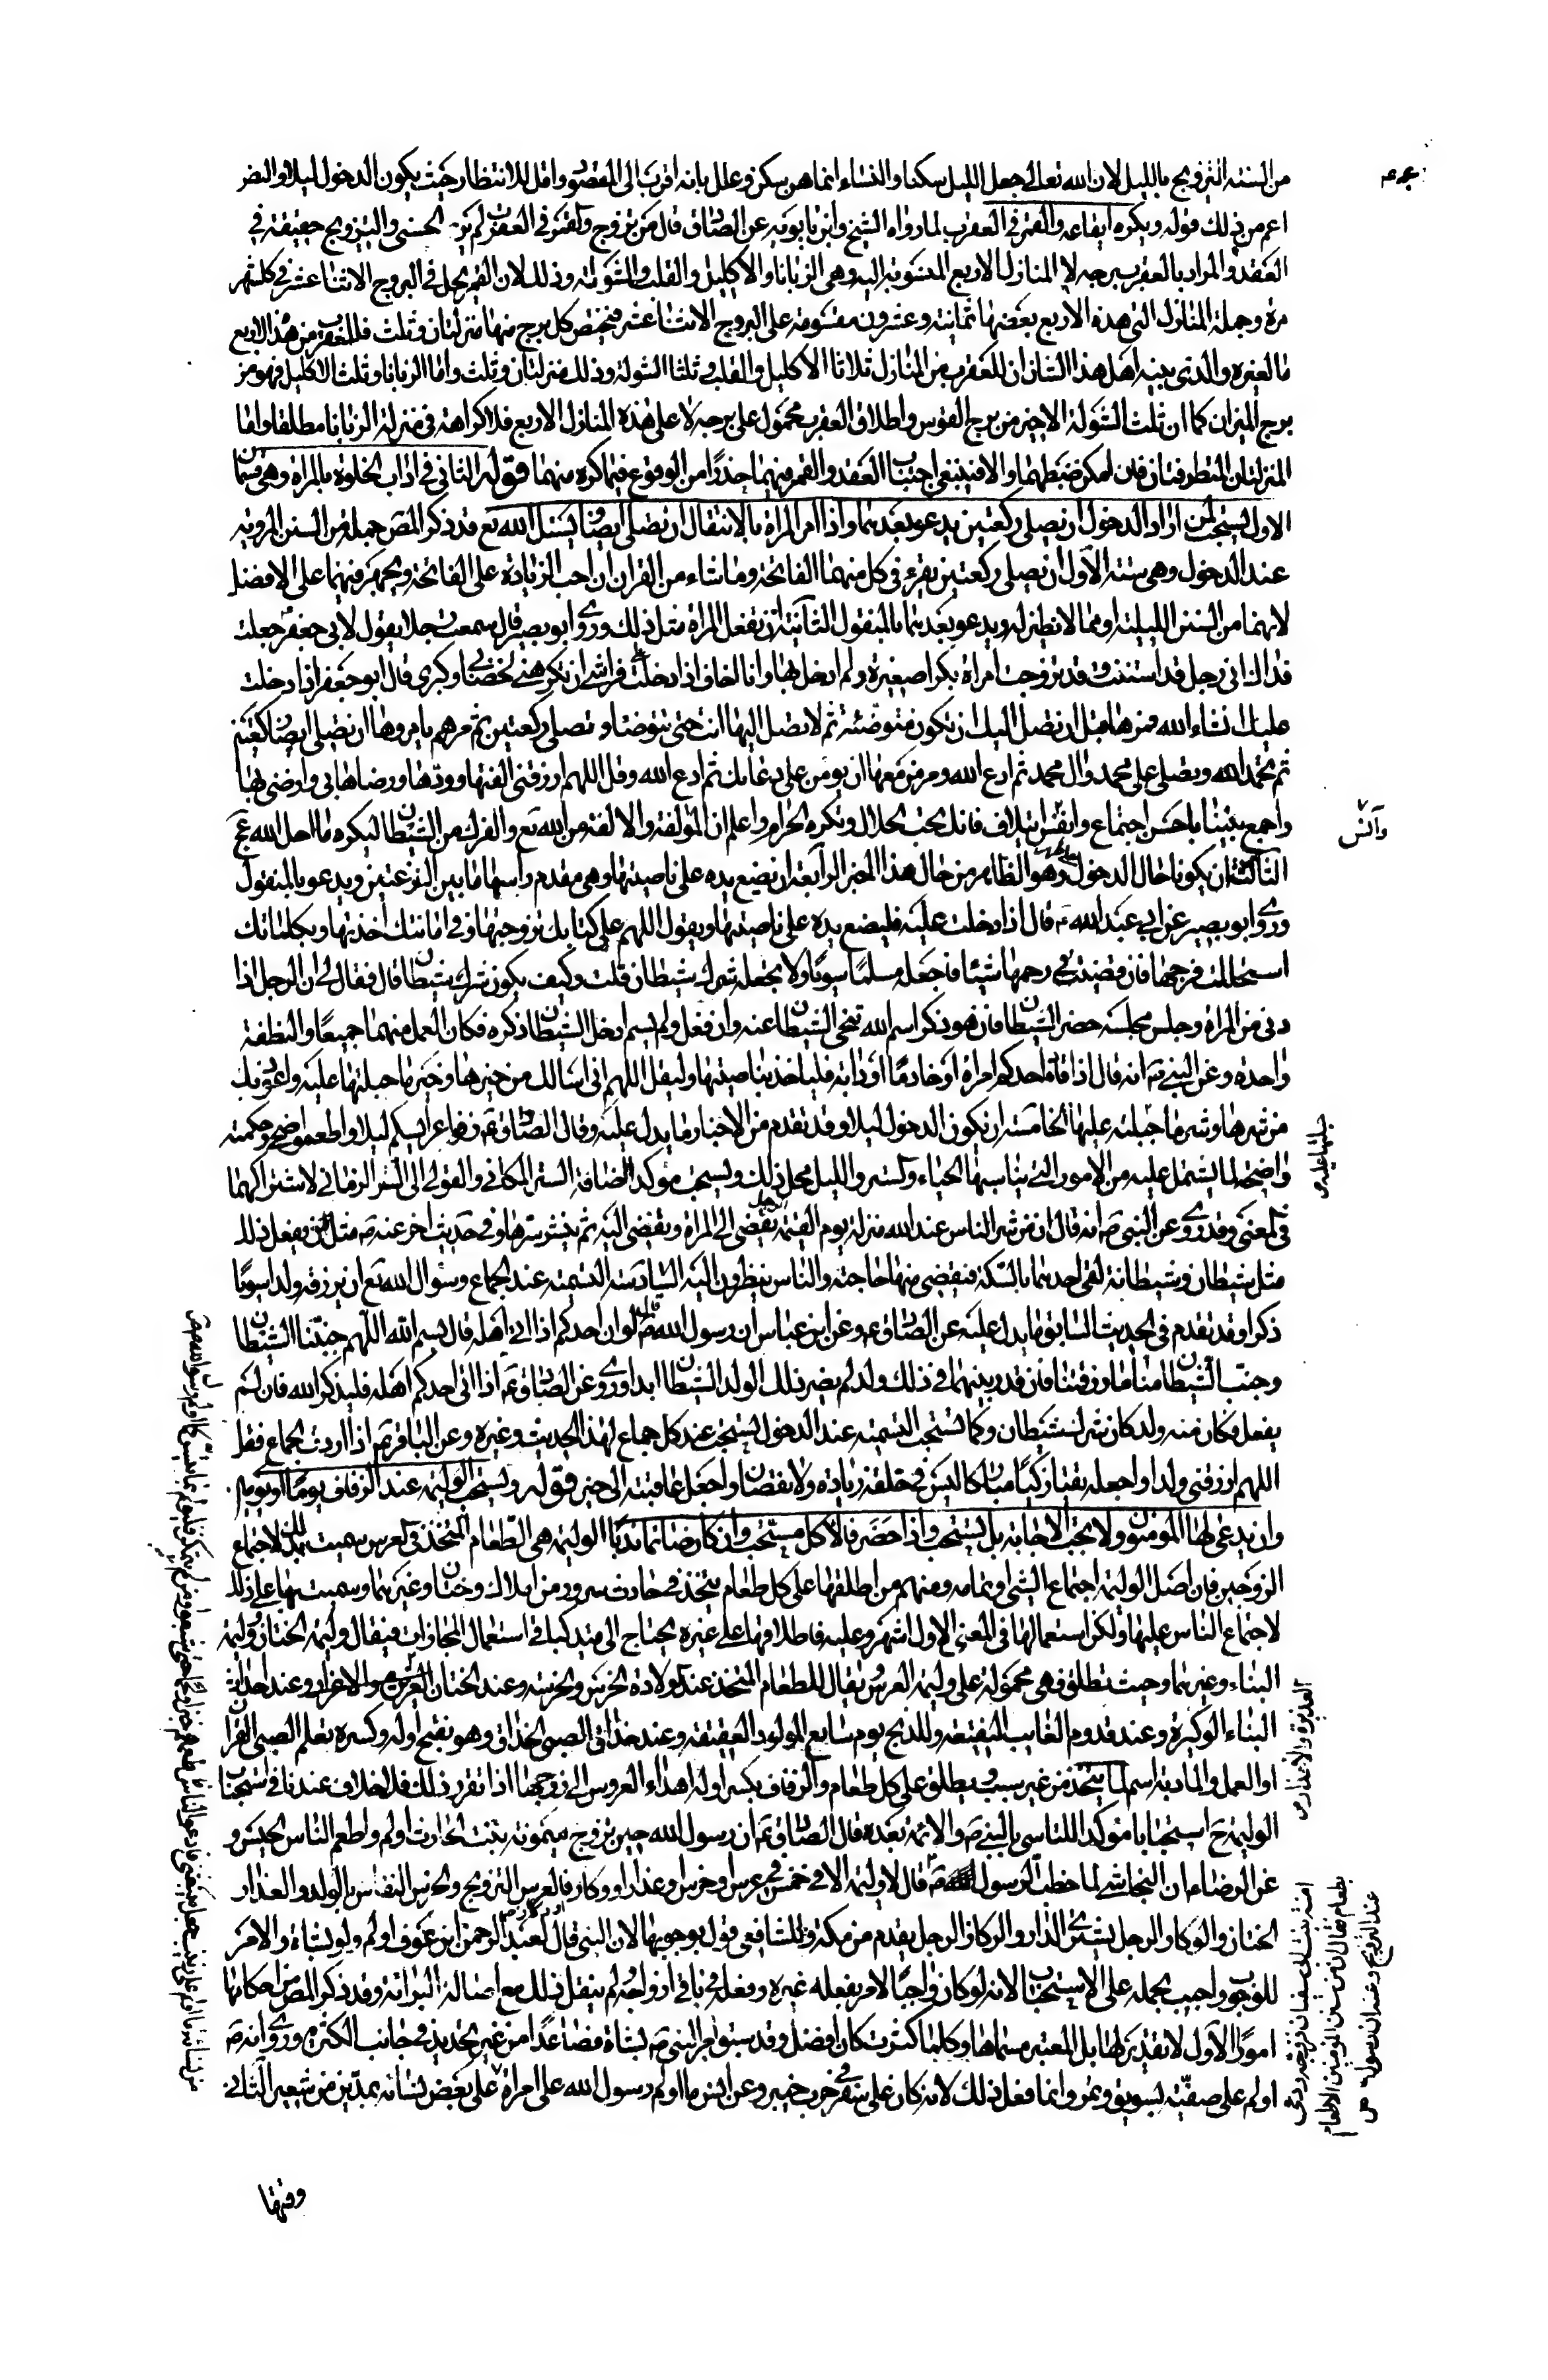 من السنة التزويج بالليل لان الله تعالى جعل الليل سكنا والنساء انما هن سكن وعلل بانه اقرب الى المقصود واقل للانتظار حيث يكون الدخول ليلا والنص
اعم من ذلك قوله ويكره ايقاعه والقمر في العقرب لما رواه الشيخ وابن بابويه عن الصادق قال من تزوج والقمر في العقرب لم ير الحسنى والتزويج حقيقة في
العقد والمراد بالعقرب برجه لا المنازل الاربع المنسوبة اليه وهى الزبانا والاكليل والقلب والشولة وذلك لان القمر يحل في البروج الاثنا عشر في كل شهر
مرة وجملة المنازل التى هذه الاربع بعضها ثمانية وعشرون مقسومة على البروج الاثنا عشر فيخص كل برج منها منزلتان وثلث فللعقرب من هذه الاربع
ما لغيره والذي بينه اهل هذا الشان ان للعقرب من المنازل ثلاثا الاكليل والقلب وثلثا الشولة وذلك منزلتان وثلث واما الزبانا وثلث الاكليل فهو من
برج الميزان كما ان ثلث الشولة الاخير من برج القوس واطلاق العقرب محمول على برجه لا على هذه المنازل الاربع فلا كراهة في منزلة الزبانا مطلقا واما
المنزلتان المتطرفتان فان امكن ضبطهما والا فينبغي اجتناب العقد والقمر فيهما حذرا من الوقوع فيما كره منهما قوله الثاني في اداب الخلوة بالمراة وهى قسمان
الاول يستحب لمن اراد الدخول ان يصلى ركعتين ويدعو بعدهما واذا امر المراة بالانتقال ان تصلى ايضا ويسئل الله تع قد ذكر المص جملة من السنن المروية
عند الدخول وهى ستة الاول ان يصلى ركعتين يقرء في كل منهما الفاتحة وما شاء من القران ان احب الزيادة على الفاتحة ويجهر فيهما على الافضل
لانهما من السنن الليلية او مما لا نظير له ويدعو بعدهما بالمنقول الثانية ان تفعل المراة مثل ذلك وروى ابو بصير قال سمعت رجلا يقول لابي جعفر جعلت
فداك انى رجل قد اسننت وقد تزوجت امراة بكرا صغيرة ولم ادخل بها وانا اخاف اذا دخلت على فراشي ان تكرهني لخضابي وكبرى قال ابو جعفر اذا دخلت
عليك انشاء الله فمرها قبل ان تصل اليك ان تكون متوضئة ثم لا تصل اليها انت حتى تتوضا وتصلى ركعتين ثم مرهم يامروها ان تصلى ايضا ركعتين
ثم تحمد الله وتصلى على محمد وال محمد ثم ادع الله ومر من معها ان يؤمن على دعائك ثم ادع الله وقل اللهم ارزقني الفتها وودها ورضاها بي وارضني بها
واجمع بيننا باحسن اجتماع وانفس ايتلاف فانك تحب الحلال وتكره الحرام واعلم ان المؤلفة والالفة من الله تع والفرك من الشيطان ليكره ما احل الله عج
الثالثة ان يكونا حال الدخول وهو الظاهر من حال هذا الخبر الرابعة ان يضع يده على ناصيتها وهى مقدم راسها ما بين النزعتين ويدعو بالمنقول
وروى ابو بصير عن ابي عبد الله ع قال اذا دخلت عليه فليضع يده على ناصيتها ويقول اللهم على كتابك تزوجتها وفي امانتك اخذتها وبكلماتك
استحللت فرجها فان قضيت في رحمها شيئا فاجعله مسلما سويا ولا تجعله شرك شيطان قلت وكيف يكون شرك شيطان قال فقال لى ان الرجل اذا
دنى من المراة وجلس مجلسه حضر الشيطان فان هو ذكر اسم الله تنحى الشيطان عنه وان فعل ولم يسم ادخل الشيطان ذكره فكان العمل منهما جميعا والنطفة
واحدة وعن النبي ص انه قال اذا افاد احدكم امراة او خادما او دابة فلياخذ بناصيتها وليقل اللهم انى اسالك من خيرها وخير ما جبلتها عليه واعوذ بك
من شرها وشر ما جبلته عليها الخامسة ان يكون الدخول ليلا وقد تقدم من الاخبار ما يدل عليه وقال الصادق ع زفوا عرايسكم ليلا واطعموا ضحى وحكمته
واضحة لما يشتمل عليه من الامور التى يناسبها الحياء والستر والليل محل ذلك ويستحب مؤكدا اضافة الستر المكاني والقولي الى الستر الزماني لاشتراكهما
في المعنى وقد روى عن النبي ص انه قال ان من شر الناس عند الله منزلة يوم القيمة الرجل يفضي الى المراة وتفضي اليه ثم ينشر سرها وفي حديث اخر عنه ص مثل من يفعل ذلك
مثل شيطان وشيطانة لقى احدهما بالسكة فيقضى منها حاجته والناس ينظرون اليه السادسة التسمية عند الجماع وسؤال الله تع ان يرزقه ولدا سويا
ذكرا وقد تقدم في الحديث السابق ما يدل عليه عن الصادق ع وعن ابن عباس ان رسول الله ص قال لو ان احدكم اذا اتى اهله قال بسم الله اللهم جنبنا الشيطان
وجنب الشيطان منا ما رزقتنا فان قدر بينهما في ذلك ولد لم يضر ذلك الولد الشيطان ابدا وروى عن الصادق ع اذا اتى احدكم اهله فليذكر الله فان لم
يفعل وكان منه ولد كان شرك شيطان وكما تستحب التسمية عند الدخول تستحب عند كل جماع لهذا الحديث وغيره وعن الباقر ع اذا اردت الجماع فقل
اللهم ارزقني ولدا واجعله تقيا زكيا مباركا ليس في خلقه زيادة ولا نقصان واجعل عاقبته الى خير قوله ويستحب الوليمة عند الزفاف يوما او يومين
وان يدعى لها المؤمنون ولا تجب الاجابة بل تستحب واذا حضر فالاكل مستحب وان كان صائما ندبا الوليمة هى الطعام المتخذ في العرس سميت بذلك لاجتماع
الزوجين فان اصل الوليمة اجتماع الشئ وتمامه ومنهم من اطلقها على كل طعام يتخذ في حادث سرور من املاك وختان وغيرهما وسميت بها على ذلك
لاجتماع الناس عليها ولكن استعمالها في المعنى الاول اشهر وعليه فاطلاقها على غيره يحتاج الى قيد كباقي استعمال المجازات فيقال وليمة الختان ووليمة
البناء وغيرهما وحيث تطلق فهى محمولة على وليمة العرس يقال للطعام المتخذ عند الولادة الخرس والخرسة وعند الختان العذيرة والاعذار وعند احداث
البناء الوكيرة وعند قدوم الغايب النقيعة وللذبح يوم سابع المولود العقيقة وعند حذاق الصبي الحذاق وهو بفتح اوله وكسره تعلم الصبي القران
او العمل والمادبة اسم لما يتخذ من غير سبب ويطلق على كل طعام والزفاف بكسر اوله اهداء العروس الى زوجها اذا تقرر ذلك فلا خلاف عندنا في استحباب
الوليمة ح استحبابا مؤكدا للتاسي بالنبي ص والائمة بعده قال الصادق ع ان رسول الله حين تزوج ميمونة بنت الحارث اولم واطعم الناس الحيس و
عن الرضا ع ان النجاشي لما خطب لرسول الله ص قال لا وليمة الا في خمس في عرس او خرس او عذار او وكار او ركاز فالعرس التزويج والخرس النفاس بالولد والعذار
الختان والوكار الرجل يشترى الدار والركاز الرجل يقدم من مكة وللشافعي قول بوجوبها لان النبي قال لعبد الرحمن ابن عوف اولم ولو بشاة والامر
للوجوب واجيب بحمله على الاستحباب لانه لو كان واجبا لامر بفعله غيره وفعله في باقي ازواجه ولم ينقل ذلك مع اصالة البرائة وقد ذكر المص من احكامها
امورا الاول لا تقدير لها بل المعتبر مسماها وكلما كثرت كان افضل وقد سبق امر النبي ص بشاة فصاعدا من غير تحديد في جانب الكثرة وروى انه ص
اولم على صفية بسويق وتمر وانما فعل ذلك لانه كان على سفر في حرب خيبر وعن انس ما اولم رسول الله على امراة على بعض نسائه بمدين من شعير الثاني
وانس
جبلتها عليه ص
العذيرة والاعذار ص
امنة بنت ابي سفيان فزوجه دعى
بطعام فقال ان من سنن المرسلين الاطعام
عند التزويج وعنه ان رسول الله ص
ووقتها